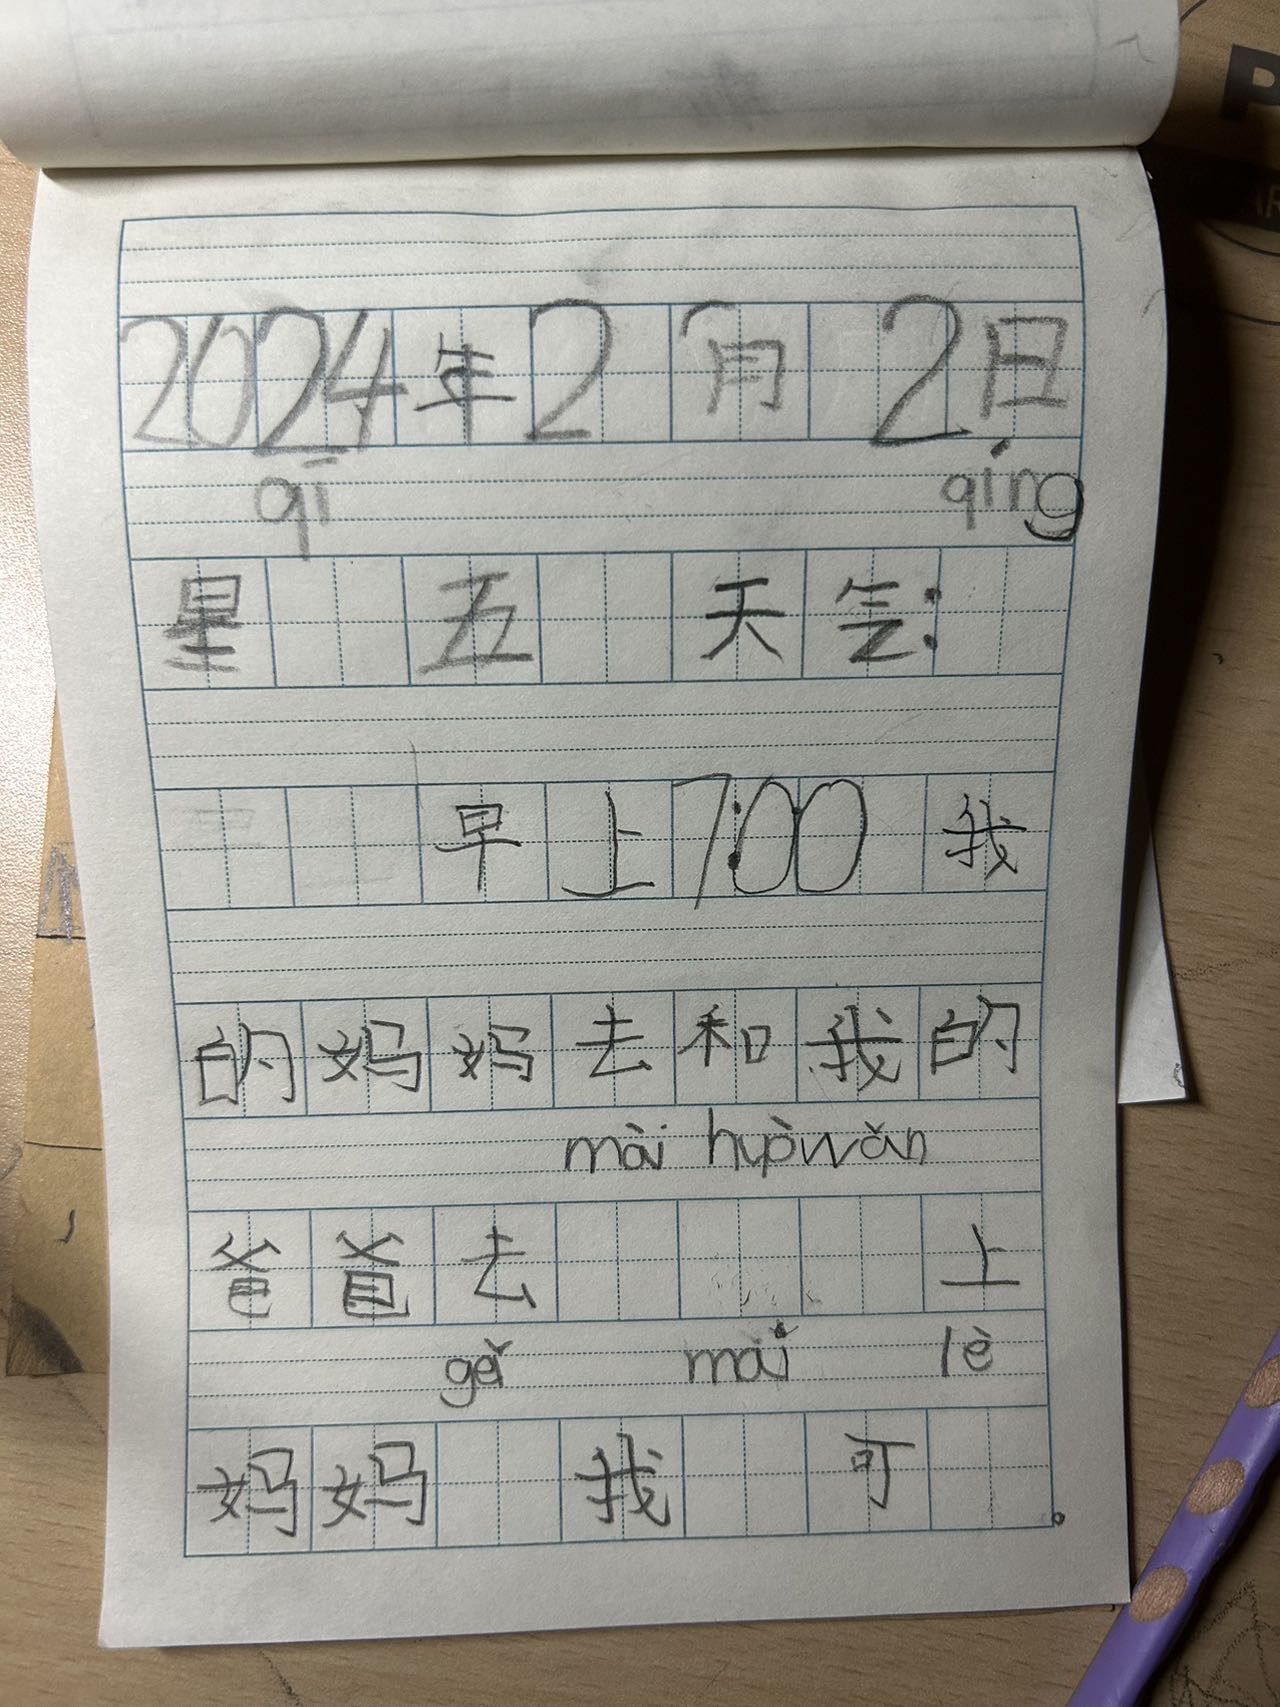 2024年2月2日
qī qíng
星 五 天气:
早上7:00我
的妈妈去和我的
mài huòwǎn
爸爸去 上
gěi mǎi lè
妈妈 我 可 。